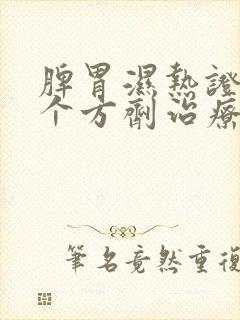 脾胃濕熱證
个方劑治療
筆名竟然重復